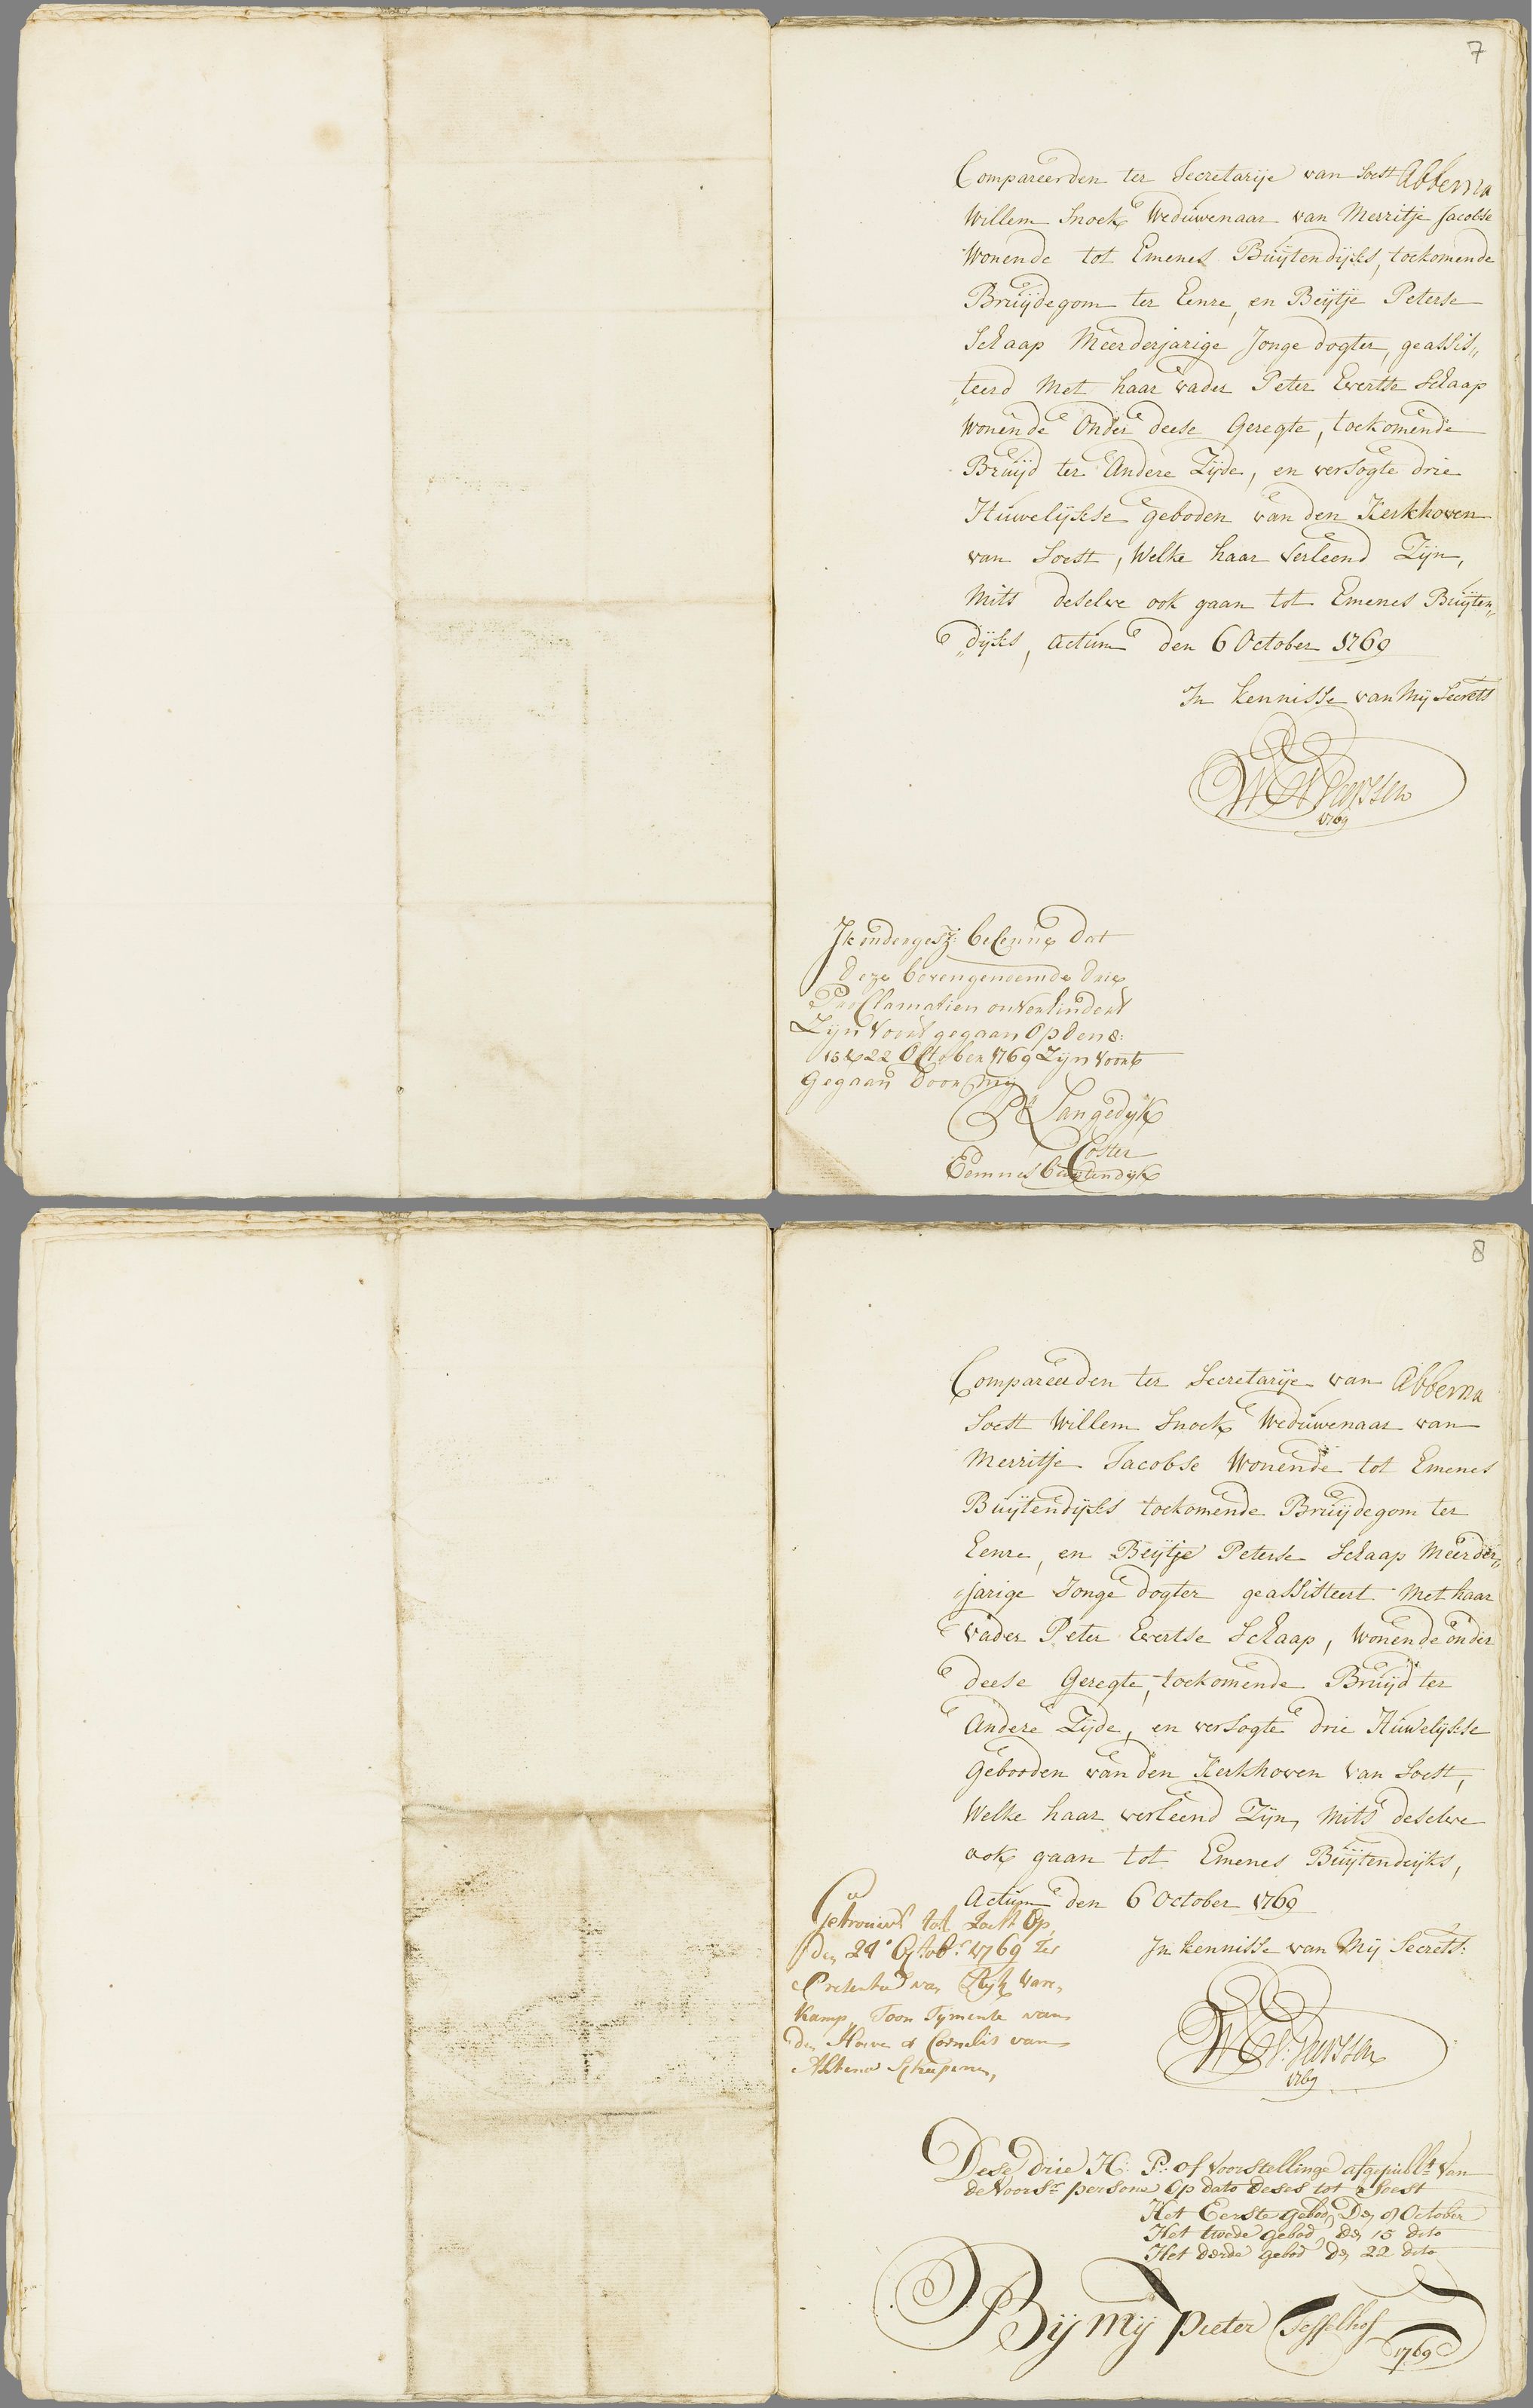 7
Compareerden ter Secretarije van Soest Abberna
Willem Snoek Weduwenaar van Merritje Jacobse
Wonende tot Emenes Buijtendijks, toekomende
Bruijdegom ter Eenre, en Beijtje Peterse
Schaap Meerderjarige Jonge dogter, geassis„
„teerd Met haar vader Peter Evertse Schaap
Wonende Onder deese Geregte, toekomende
Bruijd ter Andere Zijde, en versogte drie
Huwelijkse geboden van den Kerkhoven
van Soest, Welke haar Verleend Zijn,
Mits deselve ook gaan tot Emenes Buijten„
„dijks, Actum den 6 October 1769
In kennisse van Mij Secrets
1769
Ik ondergesz: bekenne dat
deze bovengenoemde drie
Proclamatien onverhindert
Zijn Voort gegaan Op den 8:
15 & 22 October 1769 Zijn Voort
gegaan Door mij
Langedijk
Coster
Eemnes buytendijk
8
Compareerden ter Secretarije van Abberna
Soest Willem Snoek Weduwenaar van
Merritje Jacobse Wonende tot Emenes
Buijtendijks toekomende Bruijdegom ter
Eenre, en Beijtje Peterse Schaap Meerder„
„jarige Jonge dogter geassisteert Met haar
Vader Peter Evertse Schaap, Wonende onder
deese Geregte, toekomende Bruijd ter
Andere Zijde, en versogte drie Huwelijkse
Gebooden van den Kerkhoven Van Soest,
Welke haar verleend Zijn, Mits deselve
ook gaan tot Emenes Buijtendijks,
Actum den 6 October 1769
In kennisse van Mij Secrets:
1769
Getrouwt tot Soest Op
den 24e Octob: 1769 Ter
Presentie van Rijk Van
Kamp, Toon Tijmense van
den Hoeve & Cornelis van
Althena Schepenen,
Dese drie H: P: of Voorstellinge afgepublt Van
de Voorsz persone Op dato deses tot Soest
Het Eerste gebod Den 8 October
Het twede gebod den 15 dito
Het derde gebod den 22 dito
Bij Mij Pieter Tesselhof
1769